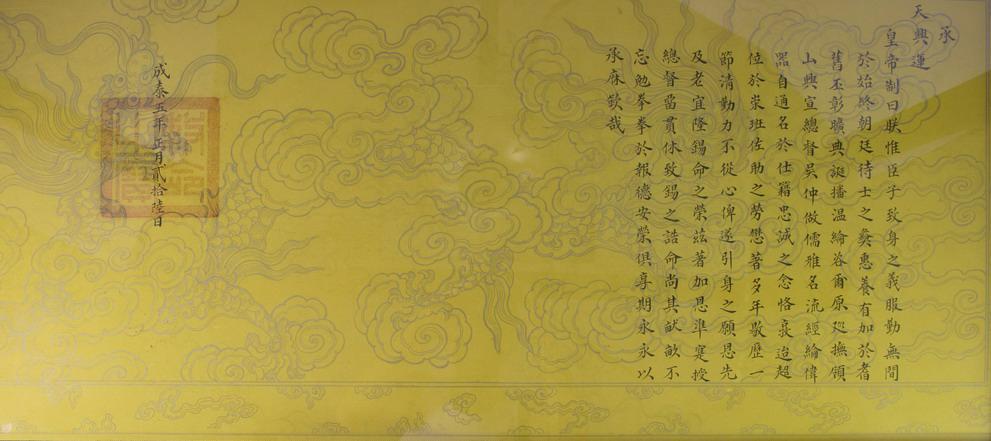 承
天興運
皇帝制曰朕惟臣子致身之義服勤無間
於始終朝廷待士之彝惠養有加於耆
舊丕彰曠典誕播溫綸咨爾原廵撫領
山興宣總督吳仲做儒雅名流經綸偉
器自通名於仕籍忠誠之念恪袞迨超
位於崇班佐助之勞懋著多年敭歷一
節清勤力不從心俾遂引身之願恩先
及老宜隆錫命之榮茲著加恩準寔授
總督留貫休致錫之誥命尚其猷畝不
忘勉拳拳於報德安榮俱享期永永以
承庥欽哉
成泰五年正月貳拾陸日